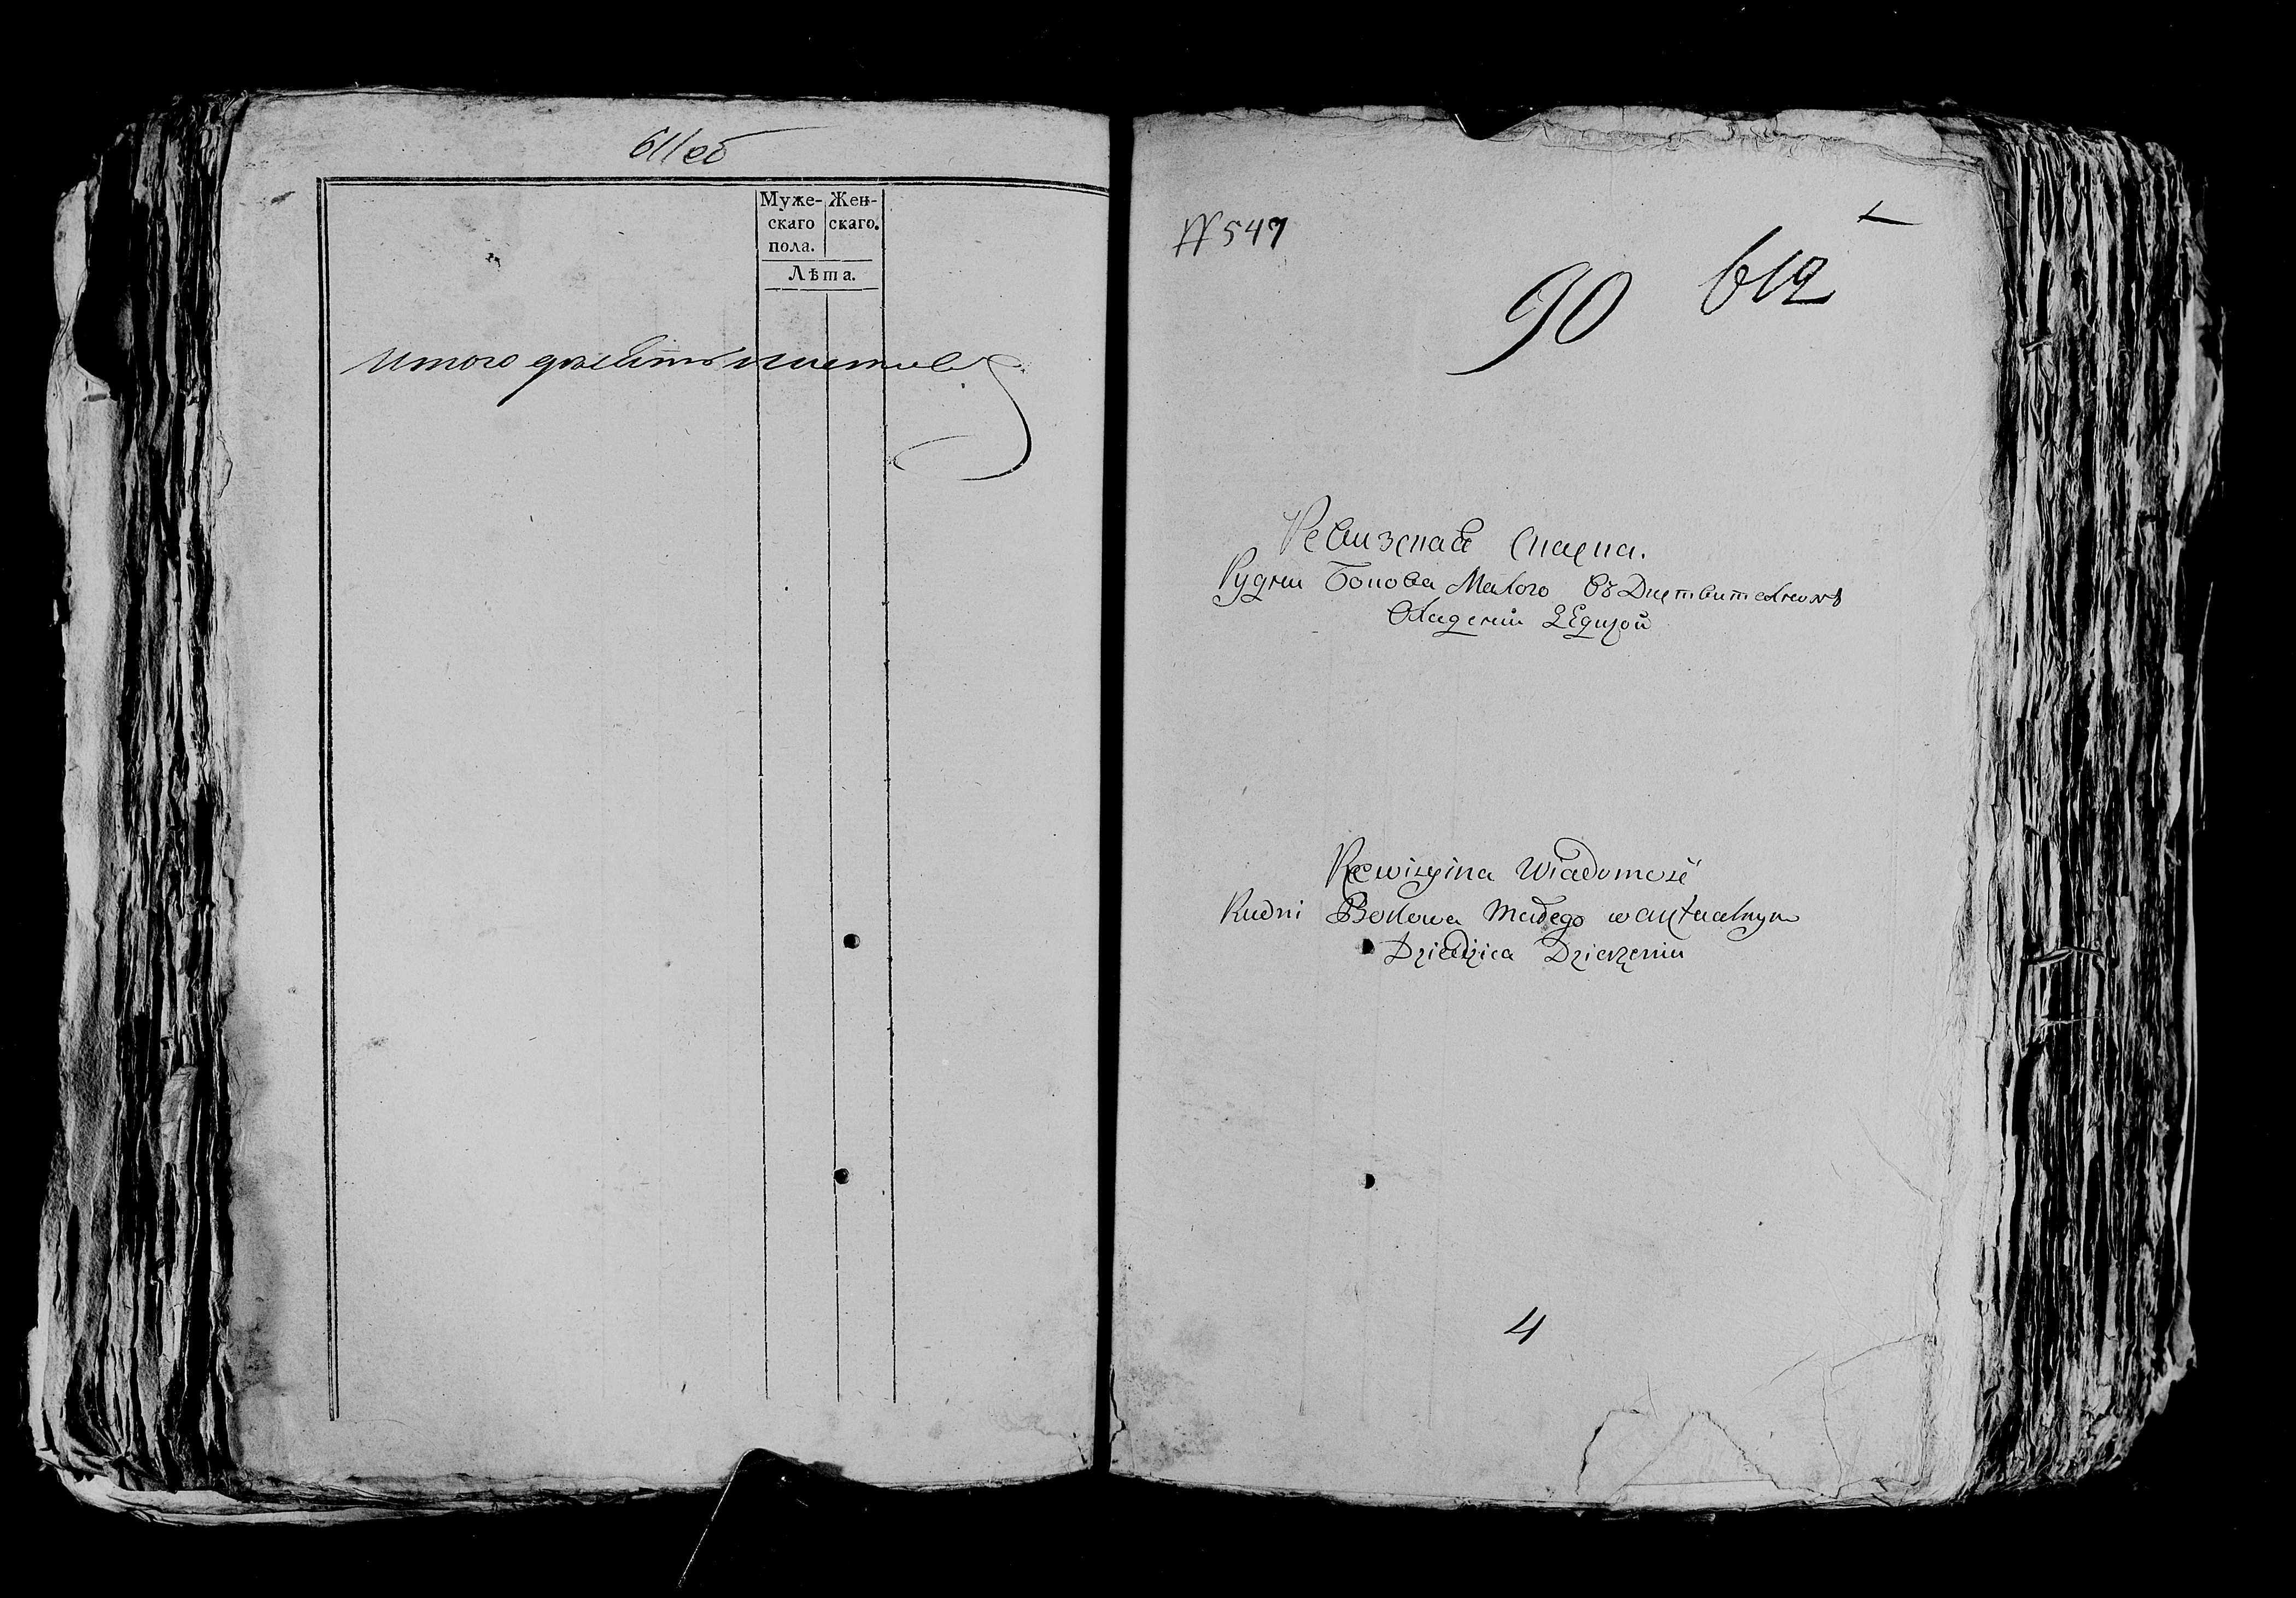 611 об
Муже-
скаго
пола.
Жен-
скаго.
Лѣта.
Итого девять листовъ
№ 547
90
612
Ревизская Сказка.
Рудни Бокова Малого въ Действителномъ
Владении
Rewizyina Wiadomość
Rudni Bokowa Małego w actualnym
Dziedzica Dzierżeniu
4